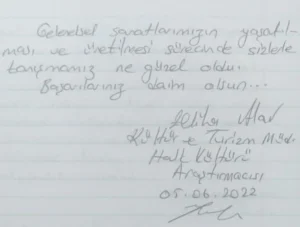 Geleneksel sanatlarımızın yaşatıl-
ması ve üretilmesi sürecinde sizlerle
tanışmamız ne güzel oldu.
Başarılarınız daim olsun...
Kültür ve Turizm Müd.
Halk Kültürü
Araştırmacısı
05.06.2022